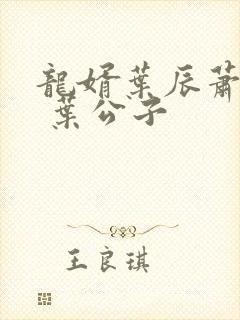 龍婿葉辰蕭
葉公子
王良琪